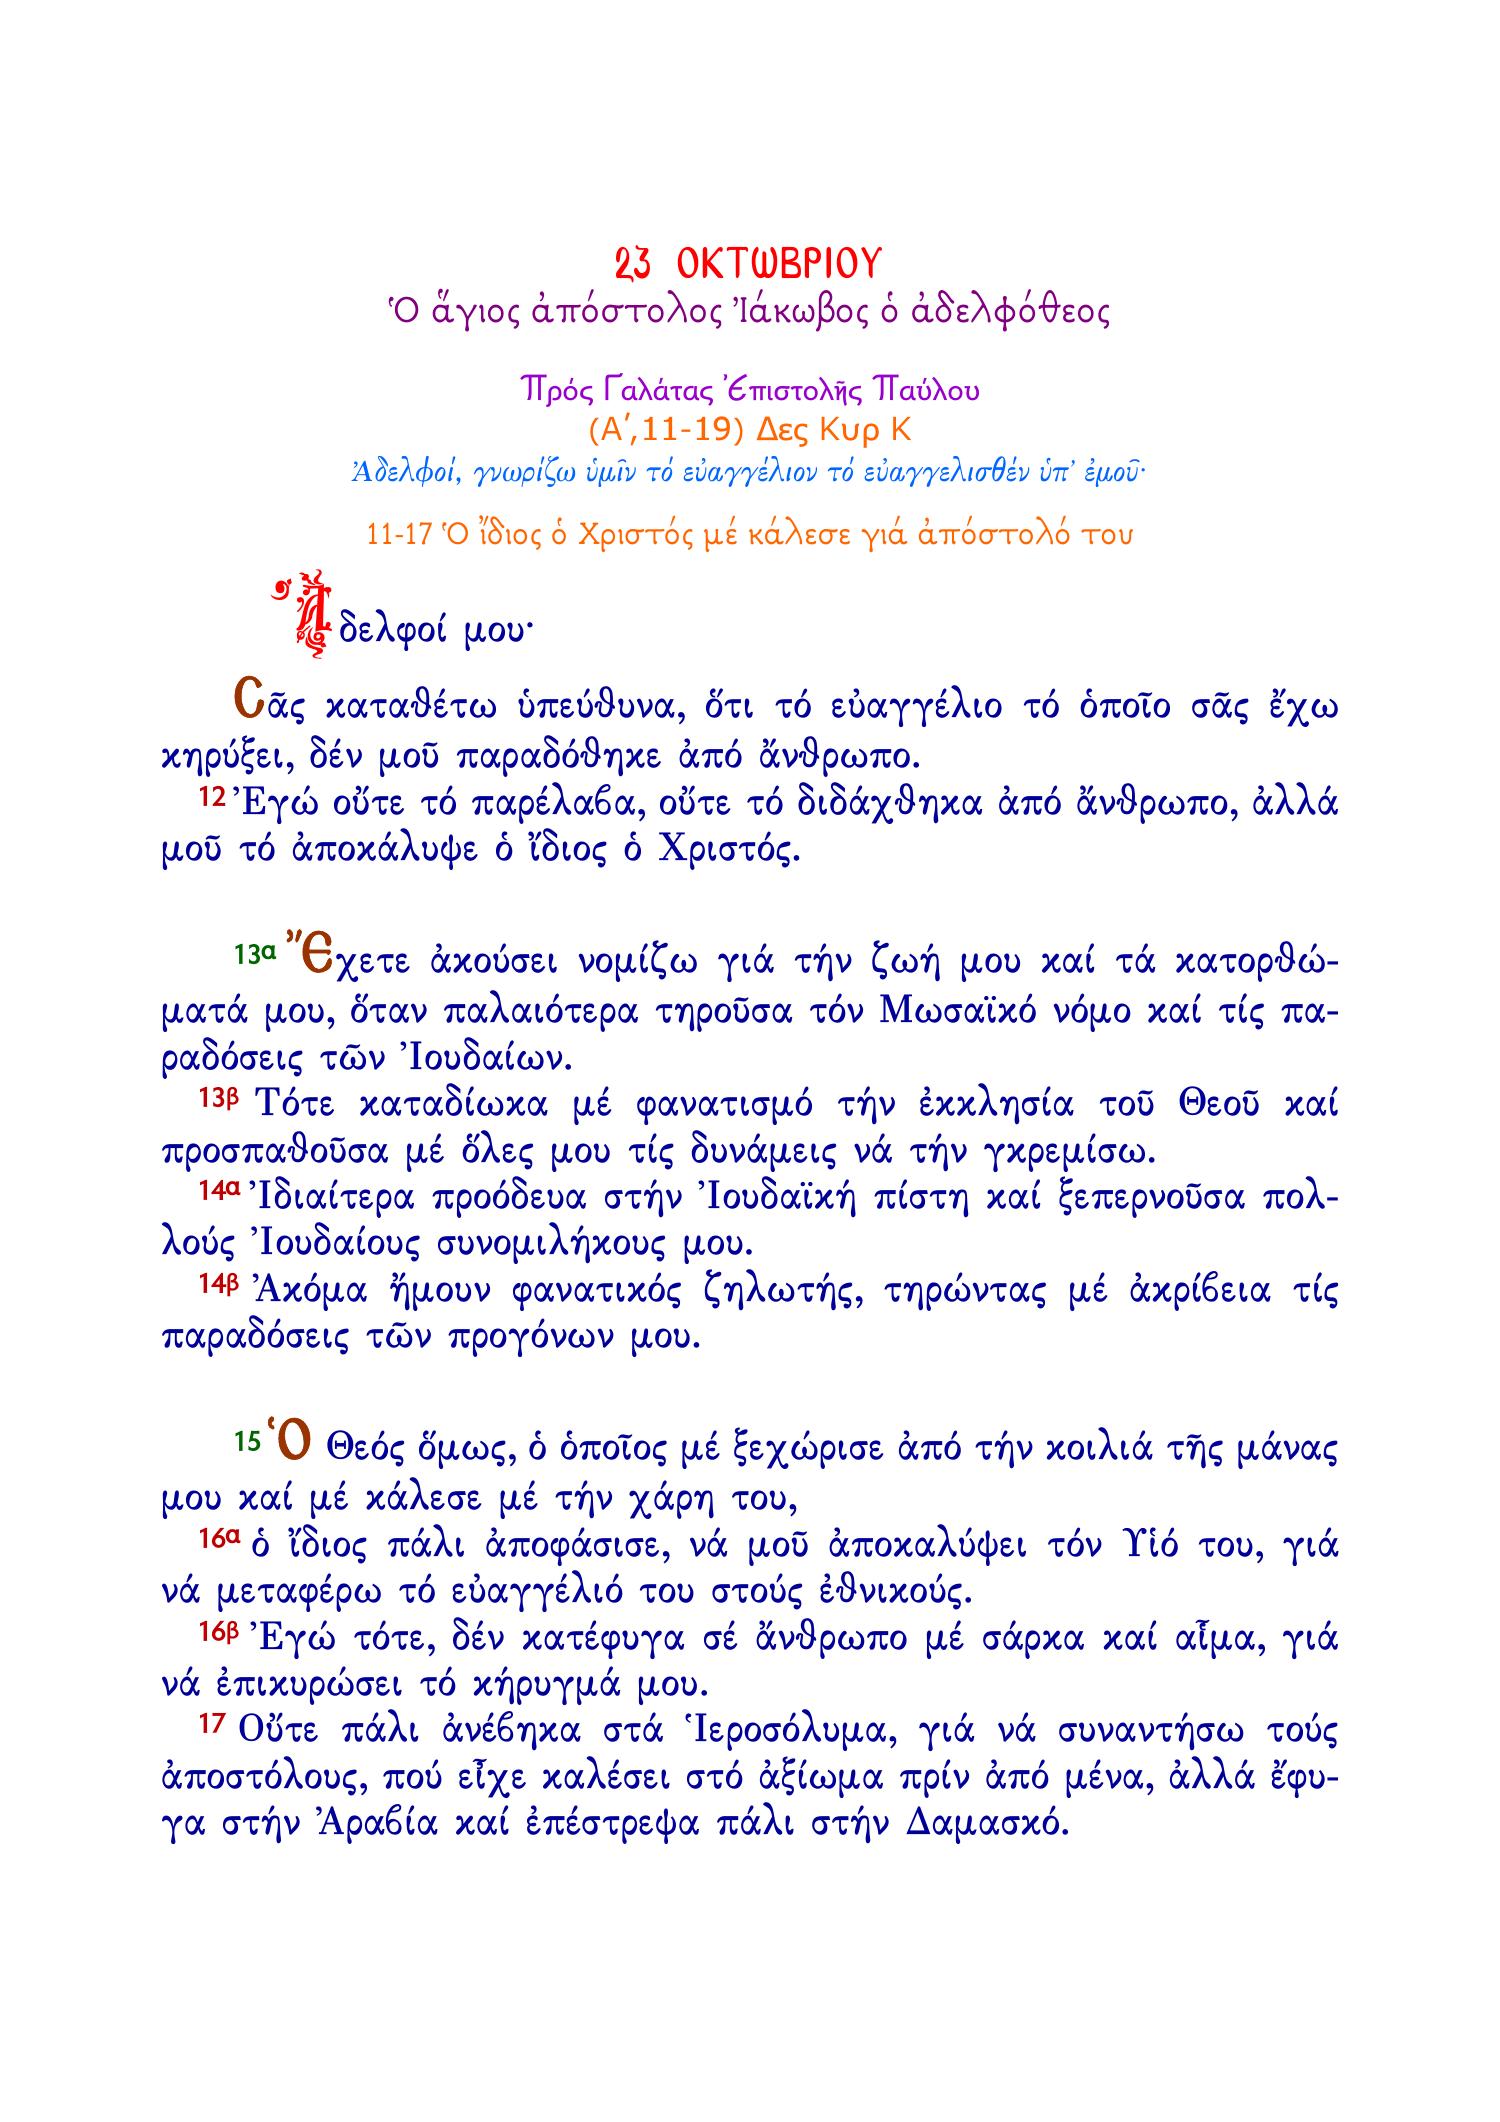 23 ΟΚΤΩΒΡΙΟΥ
Ὁ ἅγιος ἀπόστολος Ἰάκωβος ὁ ἀδελφόθεος
Πρός Γαλάτας Ἐπιστολῆς Παύλου
(Α΄,11-19) Δες Κυρ Κ
Ἀδελφοί, γνωρίζω ὑμῖν τό εὐαγγέλιον τό εὐαγγελισθέν ὑπ’ ἐμοῦ·
11-17 Ὁ ἴδιος ὁ Χριστός μέ κάλεσε γιά ἀπόστολό του
Ἀδελφοί μου·
Σᾶς καταθέτω ὑπεύθυνα, ὅτι τό εὐαγγέλιο τό ὁποῖο σᾶς ἔχω
κηρύξει, δέν μοῦ παραδόθηκε ἀπό ἄνθρωπο.
12 Ἐγώ οὔτε τό παρέλαβα, οὔτε τό διδάχθηκα ἀπό ἄνθρωπο, ἀλλά
μοῦ τό ἀποκάλυψε ὁ ἴδιος ὁ Χριστός.
13α Ἔχετε ἀκούσει νομίζω γιά τήν ζωή μου καί τά κατορθώ-
ματά μου, ὅταν παλαιότερα τηροῦσα τόν Μωσαϊκό νόμο καί τίς πα-
ραδόσεις τῶν Ἰουδαίων.
13β Τότε καταδίωκα μέ φανατισμό τήν ἐκκλησία τοῦ Θεοῦ καί
προσπαθοῦσα μέ ὅλες μου τίς δυνάμεις νά τήν γκρεμίσω.
14α Ἰδιαίτερα προόδευα στήν Ἰουδαϊκή πίστη καί ξεπερνοῦσα πολ-
λούς Ἰουδαίους συνομιλήκους μου.
14β Ἀκόμα ἤμουν φανατικός ζηλωτής, τηρώντας μέ ἀκρίβεια τίς
παραδόσεις τῶν προγόνων μου.
15 Ὁ Θεός ὅμως, ὁ ὁποῖος μέ ξεχώρισε ἀπό τήν κοιλιά τῆς μάνας
μου καί μέ κάλεσε μέ τήν χάρη του,
16α ὁ ἴδιος πάλι ἀποφάσισε, νά μοῦ ἀποκαλύψει τόν Υἱό του, γιά
νά μεταφέρω τό εὐαγγέλιό του στούς ἐθνικούς.
16β Ἐγώ τότε, δέν κατέφυγα σέ ἄνθρωπο μέ σάρκα καί αἷμα, γιά
νά ἐπικυρώσει τό κήρυγμά μου.
17 Οὔτε πάλι ἀνέβηκα στά Ἱεροσόλυμα, γιά νά συναντήσω τούς
ἀποστόλους, πού εἶχε καλέσει στό ἀξίωμα πρίν ἀπό μένα, ἀλλά ἔφυ-
γα στήν Ἀραβία καί ἐπέστρεψα πάλι στήν Δαμασκό.